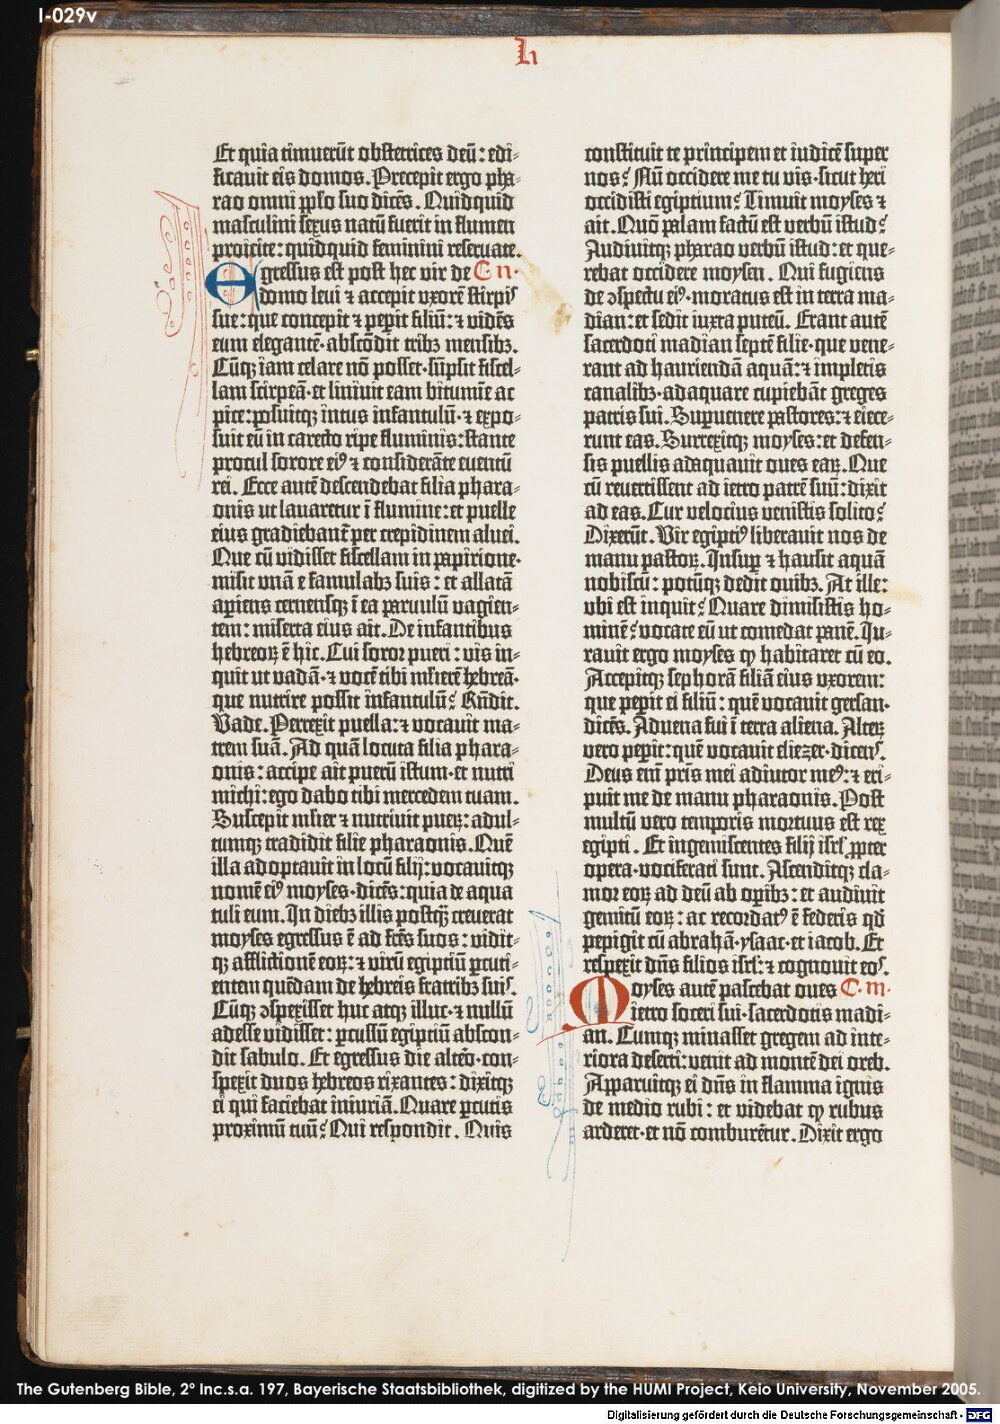 I-029v
L
Et quia timuerūt obstetrices deū: edi-
ficauit eis domos. Precepit ergo pha-
rao omni pplo suo dicēs. Quidquid
masculini sexus natū fuerit in flumen
proicite: quidquid feminini reseruate.
Egressus est post hec vir de C. II.
domo leui ⁊ accepit vxorē stirpis
sue: que concepit ⁊ peperit filiū: ⁊ vidēs
eum elegantē· abscōdit tribꝫ mensibꝫ.
Cūqꝫ iam celare nō posset· sūpsit fiscel-
lam scirpeā· et liniuit eam bitumīe ac
pice: posuitqꝫ intus infantulū· ⁊ expo-
suit eū in carecto ripe fluminis: stante
procul sorore eiꝰ ⁊ considerāte euentū
rei. Ecce autē descendebat filia phara-
onis ut lauaretur ī flumine: et puelle
eius gradiebant̄ per crepidinem aluei.
Que cū vidisset fiscellam in papirione·
misit vnā e famulabꝫ suis: et allatā
apiens cernensqꝫ ī ea paruulū vagien-
tem: miserta eius ait. De infantibus
hebreoꝝ ē hic. Cui soror pueri: vis in-
quit ut vadā· ⁊ vocē tibi mlierē hebreā·
que nutrire possit infantulū? Rn̄dit.
Vade. Perrexit puella: ⁊ vocauit ma-
trem suā. Ad quā locuta filia phara-
onis: accipe ait puerū istum· et nutri
michi: ego dabo tibi mercedem tuam.
Suscepit mlier ⁊ nutriuit pueꝝ: adul-
tumqꝫ tradidit filie pharaonis. Quē
illa adoptauit in locū filij: vocauitqꝫ
nomē eiꝰ moyses· dicēs: quia de aqua
tuli eum. In diebꝫ illis postqꝫ creuerat
moyses egressus ē ad frēs suos: vidit-
qꝫ afflictionē eoꝝ: ⁊ virū egiptiū ꝑcuti-
entem quēdam de hebreis fratribꝫ suis.
Cūqꝫ ɔspexisset huc atqꝫ illuc· ⁊ nullū
adesse vidisset: ꝑcussū egiptiū abscon-
dit sabulo. Et egressus die altēo· con-
spexit duos hebreos rixantes: dixitqꝫ
ei qui faciebat iniuriā. Quare ꝑcutis
proximū tuū? Qui respondit. Quis
constituit te principem et iudicē super
nos? Nū occidere me tu vis· sicut heri
occidisti egiptium? Timuit moyses ⁊
ait. Quō palam factū est verbū istud?
Audiuitqꝫ pharao verbū istud: et que-
rebat occidere moysen. Qui fugiens
de ɔspectu eiꝰ· moratus est in terra ma-
dian: et sedit iuxta puteū. Erant autē
sacerdoti madian septē filie· que vene-
rant ad hauriendā aquā: ⁊ impletis
canalibꝫ· adaquare cupiebāt greges
patris sui. Supuenere pastores: ⁊ eiece-
runt eas. Surrexitqꝫ moyses: et defen-
sis puellis adaquauit oues eaꝝ. Que
cū reuertissent ad ietro patrē suū: dixit
ad eas. Cur velocius venistis solito?
Dixerūt. Vir egiptiꝰ liberauit nos de
manu pastoꝝ. Insup ⁊ hausit aquā
nobiscū: potūqꝫ dedit ouibꝫ. At ille:
vbi est inquit? Quare dimisistis ho-
minē? vocate eū ut comedat panē. Iu-
rauit ergo moyses ꝙ habitaret cū eo.
Accepitqꝫ sephorā filiā eius vxorem:
que pepit ei filiū: quē vocauit gersan·
dicēs. Aduena fui ī terra aliena. Alteꝝ
vero pepit: quē vocauit eliezer· dicens.
Deus eni pris mei adiutor meꝰ: ⁊ eri-
puit me de manu pharaonis. Post
multū vero temporis mortuus est rex
egipti. Et ingemiscentes filij isrl· ꝓpter
opera· vociferati sunt. Ascenditqꝫ cla-
mor eoꝝ ad deū ab opibꝫ: et audiuit
gemitū eoꝝ: ac recordatꝰ ē federis qd̄
pepigit cū abrahā· ysaac· et iacob. Et
respexit dn̄s filios isrl: ⁊ cognouit eos.
Moyses autē pascebat oues C. III.
ietro soceri sui· sacerdotis madi-
an. Cumqꝫ minasset gregem ad inte-
riora deserti: venit ad montē dei oreb.
Apparuitqꝫ ei dn̄s in flamma ignis
de medio rubi: et videbat ꝙ rubus
arderet· et nō comburētur. Dixit ergo
The Gutenberg Bible, 2° Inc.s.a. 197, Bayerische Staatsbibliothek, digitized by the HUMI Project, Keio University, November 2005.
Digitalisierung gefördert durch die Deutsche Forschungsgemeinschaft - DFG